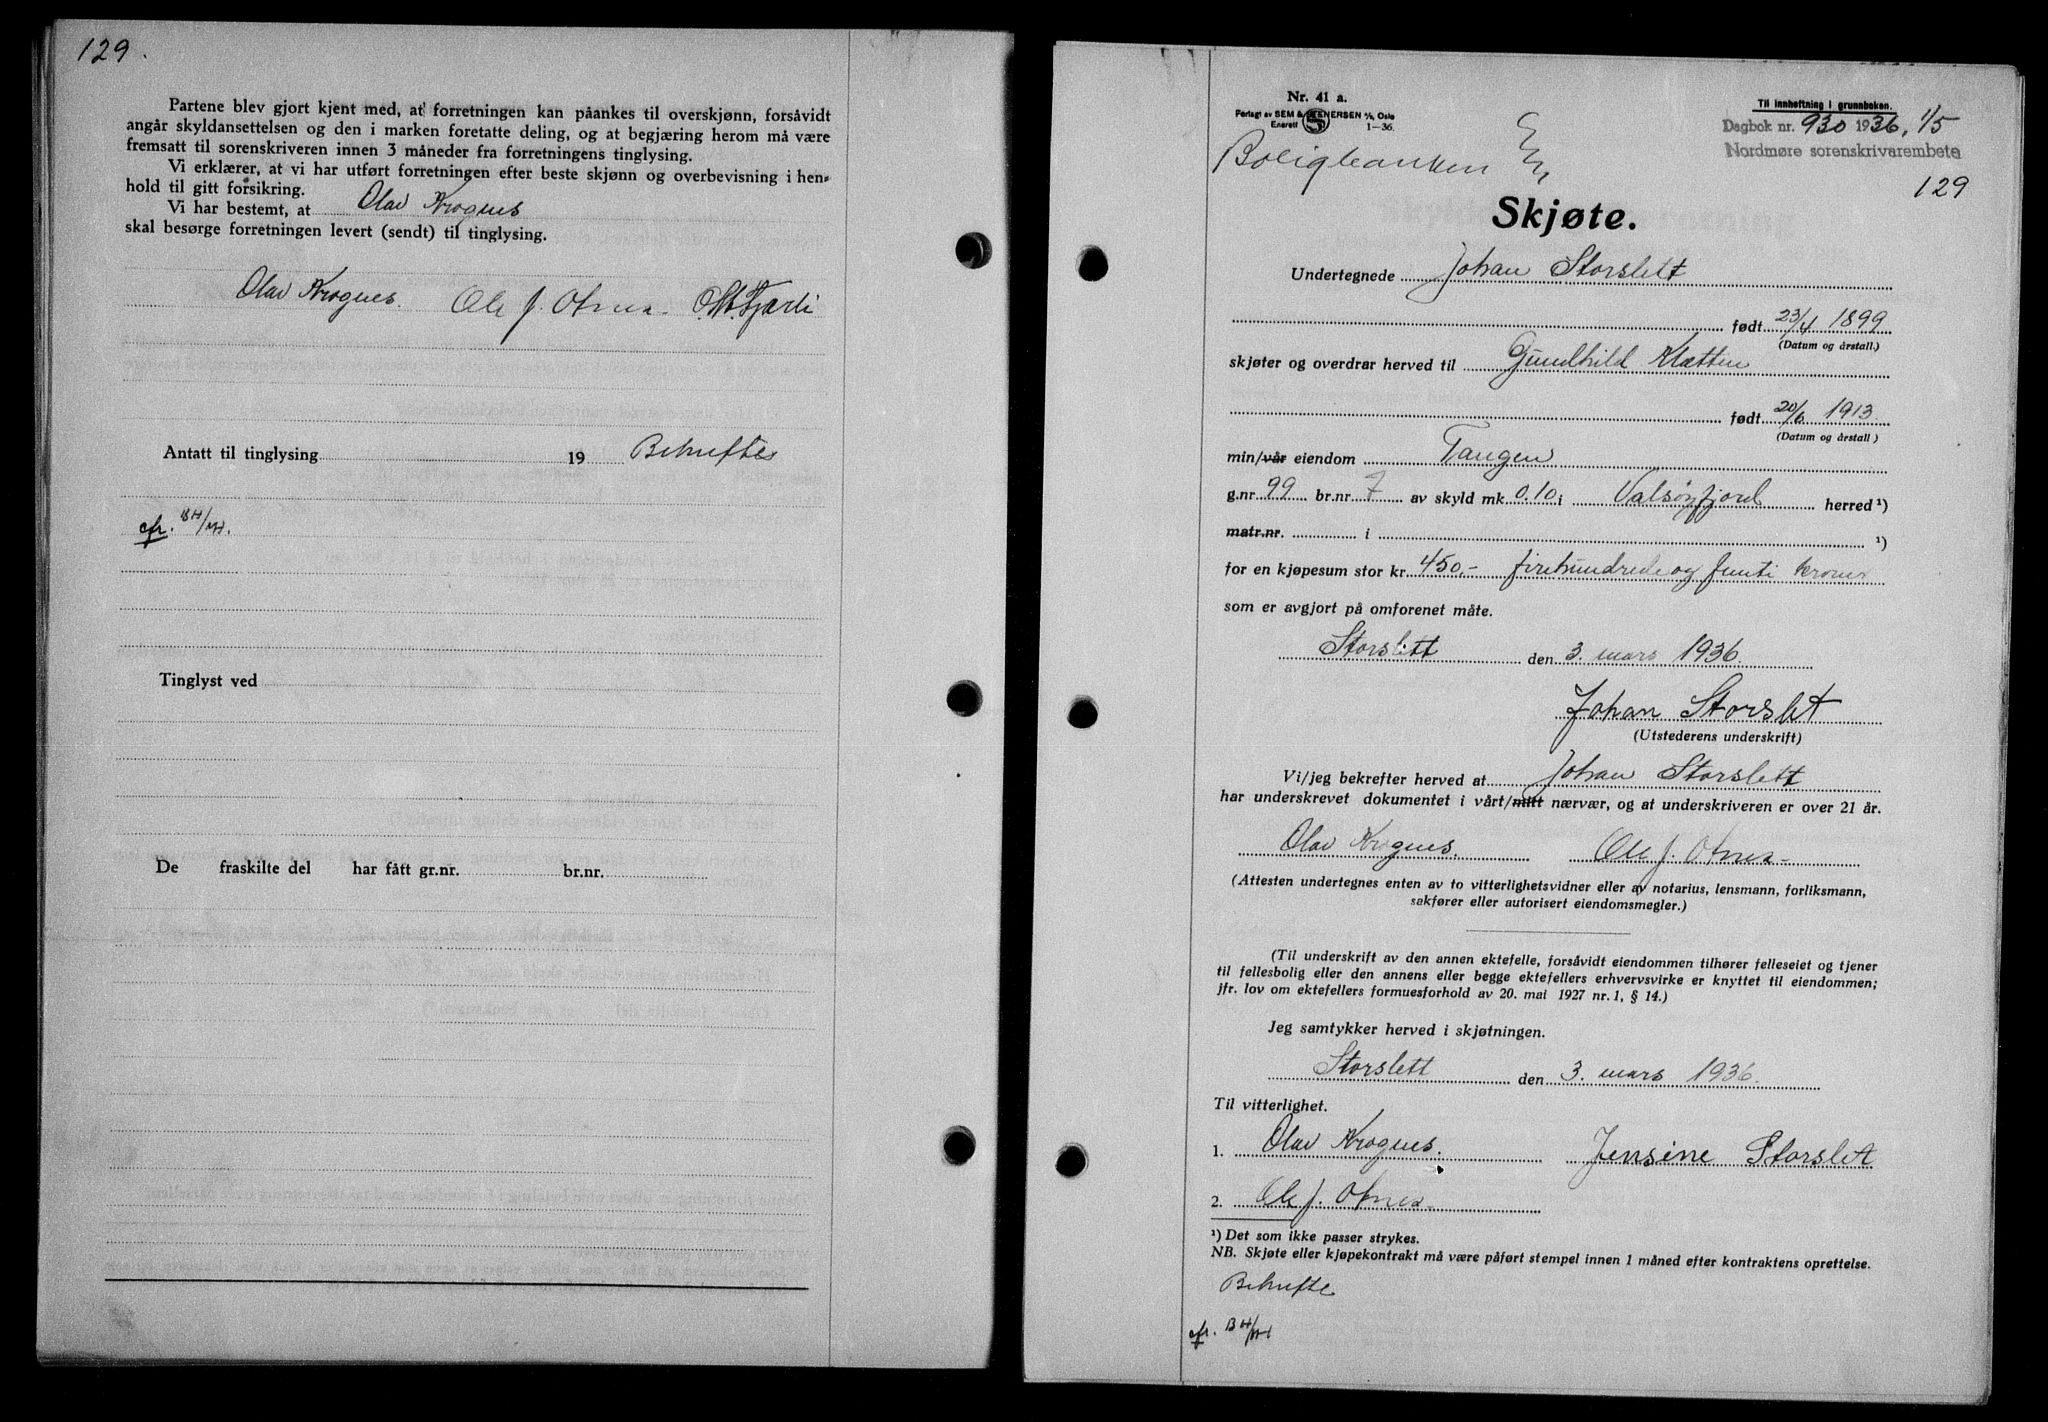 129.
Partene blev gjort kjent med, at forretningen kan påankes til overskjønn, forsåvidt
angår skyldansettelsen og den i marken foretatte deling, og at begjæring herom må være
fremsatt til sorenskriveren innen 3 måneder fra forretningens tinglysing.
Vi erklærer, at vi har utført forretningen efter beste skjønn og overbevisning i hen-
hold til gitt forsikring.
Vi har bestemt, at Olav Krognes
skal besørge forretningen levert (sendt) til tinglysing.
Olav Krognes. Ole J. Otnes
Antatt til tinglysing 19 Bekreftes
cfr.
Tinglyst ved
De fraskilte del har fått gr.nr. br.nr.
Nr. 41 a.
Forlagt av SEM & STENERSEN A/S, Oslo
Enerett 1—36.
Boligbanken
Til innheftning i grunnboken.
Dagbok nr. 930 1936, 1/5
Nordmøre sorenskrivarembete
129
Skjøte.
Undertegnede Johan Storslett
født 23/4 1899
(Datum og årstall.)
skjøter og overdrar herved til Gundhild Klætten
født 20/6 1913
(Datum og årstall)
min/vår eiendom Tangen
g.nr 99 br.nr 7 av skyld mk 0.10 i Valsøyfjord herred ¹)
matr.nr. i ¹)
for en kjøpesum stor kr 450,- firehundrede og femti kroner
som er avgjort på omforenet måte.
Storslett den 3. mars 1936.
Johan Storslet
(Utstederens underskrift)
Vi/jeg bekrefter herved at Johan Storslett
har underskrevet dokumentet i vårt/mitt nærvær, og at underskriveren er over 21 år.
Olav Krognes. Ole J. Otnes
(Attesten undertegnes enten av to vitterlighetsvidner eller av notarius, lensmann, forliksmann,
sakfører eller autorisert eiendomsmegler.)
(Til underskrift av den annen ektefelle, forsåvidt eiendommen tilhører felleseiet og tjener
til fellesbolig eller den annens eller begge ektefellers erhvervsvirke er knyttet til eiendommen;
jfr. lov om ektefellers formuesforhold av 20. mai 1927 nr. 1, § 14.)
Jeg samtykker herved i skjøtningen.
Storslett den 3. mars 1936.
Til vitterlighet.
1. Olav Krognes. Jensine Storslet
2. Ole J. Otnes
¹) Det som ikke passer strykes.
NB. Skjøte eller kjøpekontrakt må være påført stempel innen 1 måned efter kontraktens oprettelse.
Bekreftes
cfr.